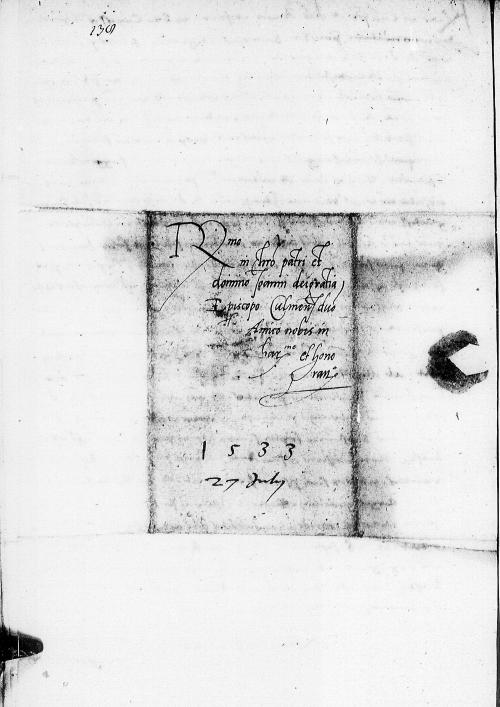 138
Rmo
in chro patri et
domino Joanni dei gratia
Episcopo Culmensi duo
Amico nobis in
char mo et hono
ran
1533
27 July